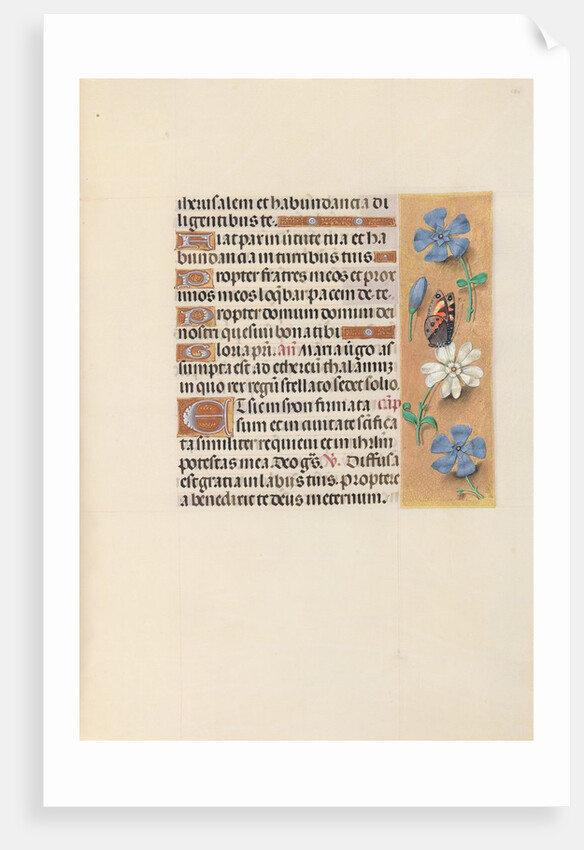 iherusalem et habundancia di
ligentibus te.
Fiat pax in uirtute tua et ha
bundancia in turribus tuis.
Propter fratres meos et prox
imos meos loq̄bar pacem de te.
Propter domum domini dei
nostri quesiui bona tibi
Gloria pr̄i. an̄ Maria uirgo as
sumpta est ad ethereū thalamū
in quo rex regū stellato sedet solio.
Et sic in syon firmata cap̄
sum et in ciuitate sc̄ifica
ta similiter requieui et in ihrl̄m
potestas mea. Deo gr̄s. V. Diffusa
est gratia in labiis tuis. propter e
a benedixit te deus in eternum.